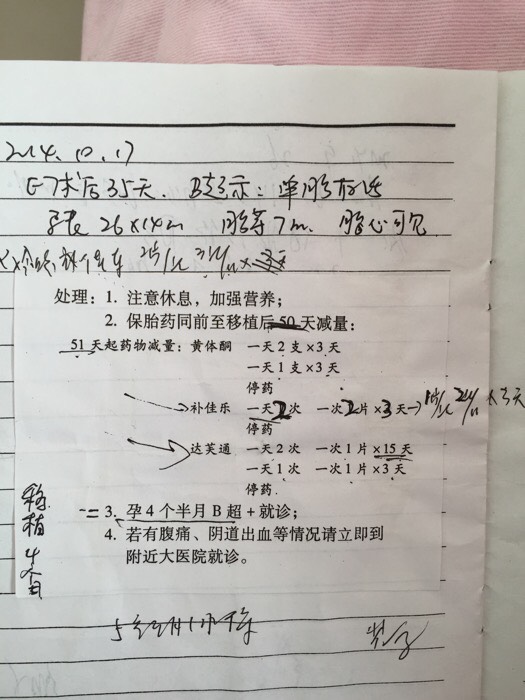 2014.10.17
术后35天. B超示: 单胎存活
26×14m 胎芽7m. 胎心可见
处理：1. 注意休息，加强营养；
2. 保胎药同前至移植后50天减量：
51天起药物减量：黄体酮 一天2支×3天
一天1支×3天
停药
补佳乐 一天2次 一次2片×3天→
停药
达芙通 一天2次 一次1片×15天
一天1次 一次1片×3天
停药.
3. 孕4个半月B超+就诊；
4. 若有腹痛、阴道出血等情况请立即到
附近大医院就诊。
移植4个月